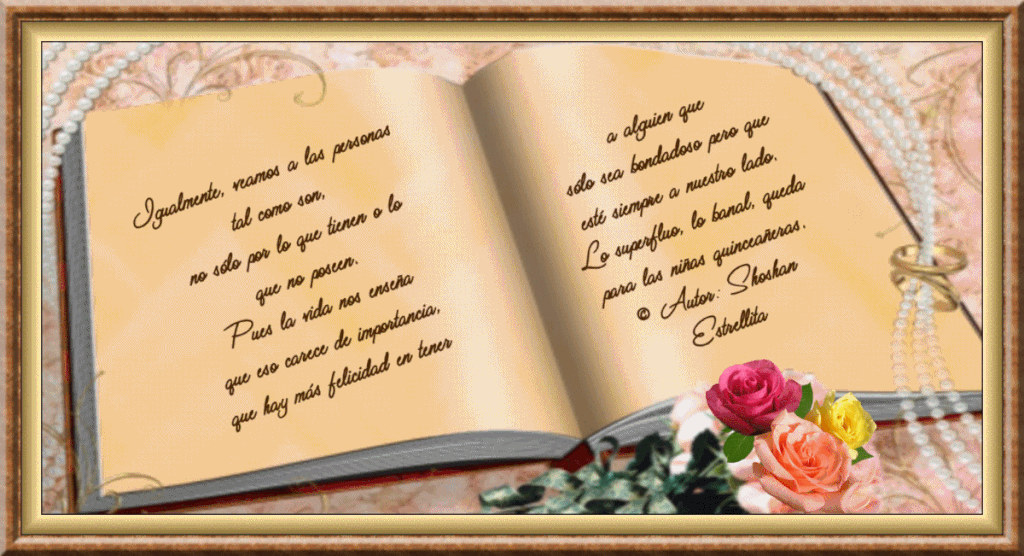 Igualmente, veamos a las personas
tal como son,
no sólo por lo que tienen o lo
que no poseen.
Pues la vida nos enseña
que eso carece de importancia,
que hay más felicidad en tener
a alguien que
sólo sea bondadoso pero que
esté siempre a nuestro lado.
Lo superfluo, lo banal, queda
para las niñas quinceañeras.
© Autor: Shoshan
Estrellita